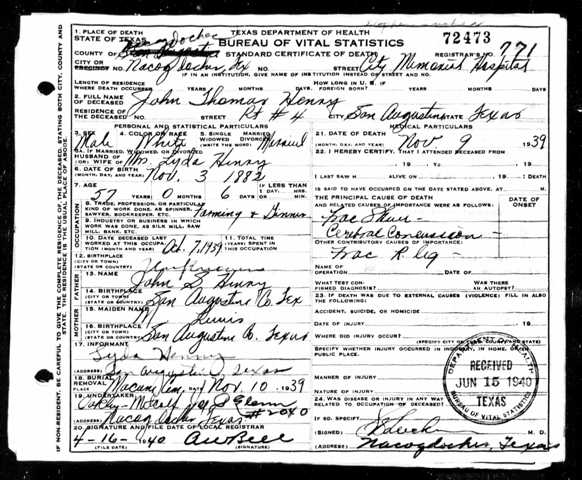 1. PLACE OF DEATH
TEXAS DEPARTMENT OF HEALTH
72473
STATE OF TEXAS
BUREAU OF VITAL STATISTICS
COUNTY OF
STANDARD CERTIFICATE OF DEATH
REGISTRAR'S NO. 771
CITY OR PRECINCT NO. Nacogdoches, Tx
STREET City Memorial Hospital
IF IN AN INSTITUTION, GIVE NAME INSTEAD OF STREET AND NO.
LENGTH OF RESIDENCE WHERE DEATH OCCURRED YEARS MONTHS DAYS
HOW LONG IN U. S. IF FOREIGN BORN? YEARS MONTHS DAYS
2. FULL NAME OF DECEASED John Thomas Henry
RESIDENCE OF THE DECEASED STREET Rt #4 CITY San Augustine STATE Texas
PERSONAL AND STATISTICAL PARTICULARS
MEDICAL PARTICULARS
3. SEX Male
4. COLOR OR RACE White
5. SINGLE MARRIED WIDOWED DIVORCED Married
21. DATE OF DEATH (MONTH, DAY, AND YEAR) Nov 9 1939
5A. IF MARRIED, WIDOWED OR DIVORCED HUSBAND OF (OR) WIFE OF Mrs. Lyda Henry
22. I HEREBY CERTIFY, THAT I ATTENDED DECEASED FROM
6. DATE OF BIRTH (MONTH, DAY, YEAR) Nov. 3 1882
I LAST SAW H ALIVE ON 19
7. AGE YEARS MONTHS DAYS IF LESS THAN 1 DAY HOURS MIN
57 0 6
IS SAID TO HAVE OCCURRED ON THE DATE STATED ABOVE, AT M.
THE PRINCIPAL CAUSE OF DEATH AND RELATED CAUSES OF IMPORTANCE WERE AS FOLLOWS:
DATE OF ONSET
OCCUPATION
8. TRADE, PROFESSION, OR PARTICULAR KIND OF WORK DONE, AS SPINNER, SAWYER, BOOKKEEPER, ETC. Farming &
9. INDUSTRY OR BUSINESS IN WHICH WORK WAS DONE, AS SILK MILL, SAW MILL, BANK, ETC.
Frac Skull
Cerebral Concussion
10. DATE DECEASED LAST WORKED AT THIS OCCUPATION Oct. 7, 1939
11. TOTAL YEARS SPENT IN THIS OCCUPATION
OTHER CONTRIBUTORY CAUSES OF IMPORTANCE:
Frac R. leg
12. BIRTHPLACE (CITY OR TOWN) (STATE OR COUNTRY)
NAME OF OPERATION DATE OF
FATHER
13. NAME John S Henry
WHAT TEST CONFIRMED DIAGNOSIS? WAS THERE AN AUTOPSY?
14. BIRTHPLACE (CITY OR TOWN) (STATE OR COUNTRY) San Augustine Co. Tex
23. IF DEATH WAS DUE TO EXTERNAL CAUSES (VIOLENCE) FILL IN ALSO THE FOLLOWING:
ACCIDENT, SUICIDE, OR HOMICIDE?
MOTHER
15. MAIDEN NAME Lewis
DATE OF INJURY 19
16. BIRTHPLACE (CITY OR TOWN) (STATE OR COUNTRY) San Augustine Co. Texas
WHERE DID INJURY OCCUR?
17. INFORMANT Lyda Henry
SPECIFY WHETHER INJURY OCCURRED IN INDUSTRY, IN HOME, OR PUBLIC PLACE.
(ADDRESS) San Augustine, Texas
18. BURIAL REMOVAL PLACE Cem DATE Nov. 10 1939
MANNER OF INJURY
NATURE OF INJURY
19. UNDERTAKER Oakley-Metcalf
(ADDRESS) Nacogdoches Texas #2040
24. WAS DISEASE OR INJURY IN ANY WAY RELATED TO OCCUPATION OF DECEASED?
IF SO, SPECIFY
20. SIGNATURE AND FILE DATE OF LOCAL REGISTRAR
4-16-1940
(FILE DATE) (REGISTRAR)
(SIGNED) M. D.
(ADDRESS) Nacogdoches, Texas
DEPARTMENT OF HEALTH
RECEIVED
JUN 15 1940
TEXAS
BUREAU OF VITAL STATISTICS